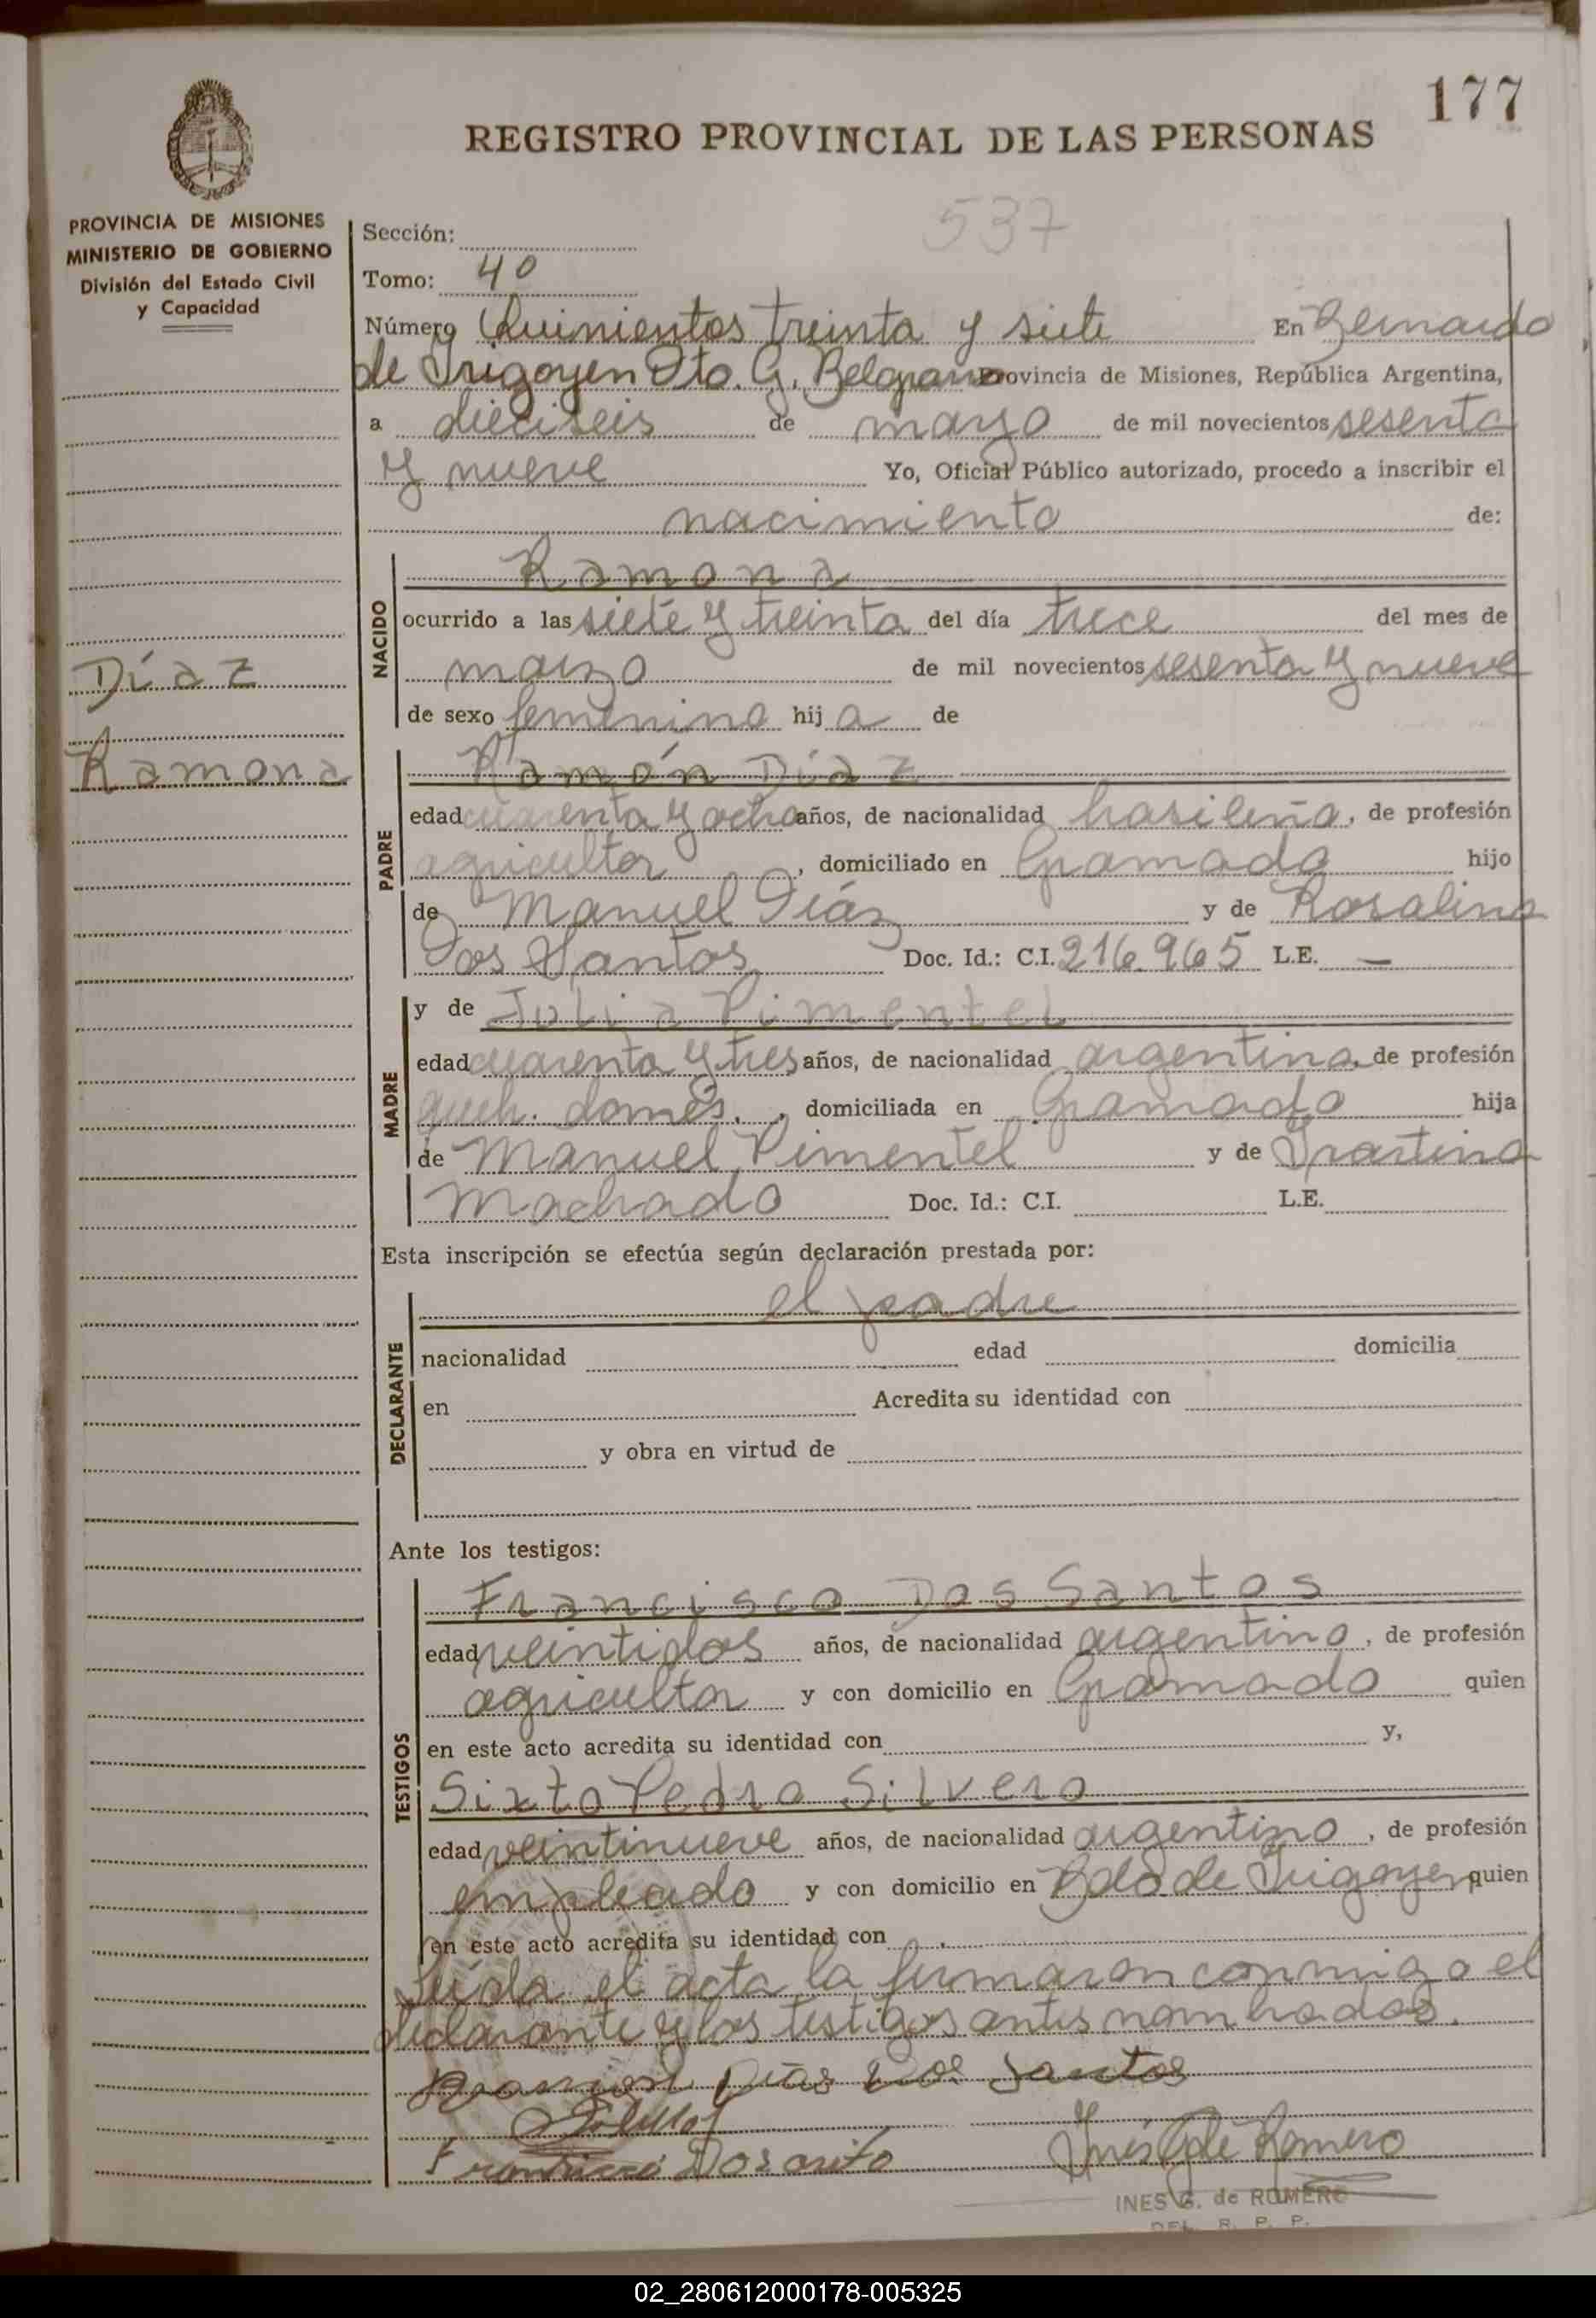 177
REGISTRO PROVINCIAL DE LAS PERSONAS
PROVINCIA DE MISIONES
MINISTERIO DE GOBIERNO
División del Estado Civil
y Capacidad
537
Sección:
Tomo: 40
Número Quinientos treinta y siete En Bernardo
de Irigoyen Dto. G. Belgrano Provincia de Misiones, República Argentina,
a dieciseis de marzo de mil novecientos sesenta
y nueve Yo, Oficial Público autorizado, procedo a inscribir el
nacimiento de:
Díaz
Ramona
NACIDO
Ramona
ocurrido a las siete y treinta del día trece del mes de
marzo de mil novecientos sesenta y nueve
de sexo femenino hij a de
PADRE
Ramón Díaz
edad cuarenta y ocho años, de nacionalidad brasileña, de profesión
agricultor, domiciliado en Gramado hijo
de Manuel Díaz y de Rosalina
Dos Santos Doc. Id.: C.I. 216.965 L.E. —
MADRE
y de Julia Pimentel
edad cuarenta y tres años, de nacionalidad argentina, de profesión
queh. domés., domiciliada en Gramado hija
de Manuel Pimentel y de
Machado Doc. Id.: C.I. L.E.
Esta inscripción se efectúa según declaración prestada por:
DECLARANTE
el padre
nacionalidad edad domicilia
en Acredita su identidad con
y obra en virtud de
Ante los testigos:
TESTIGOS
Francisco Dos Santos
edad veintidos años, de nacionalidad argentino, de profesión
agricultor y con domicilio en Gramado quien
en este acto acredita su identidad con y,
Sixto Pedro Silvero
edad veintinueve años, de nacionalidad argentino, de profesión
empleado y con domicilio en Bdo de Irigoyen quien
en este acto acredita su identidad con
Leída el acta la firmaron conmigo el
declarante y los testigos antes nombrados.
Dias Dos Santos
Inés G de Romero
INES G. de ROMERO
DEL. R. P. P.
02_280612000178-005325